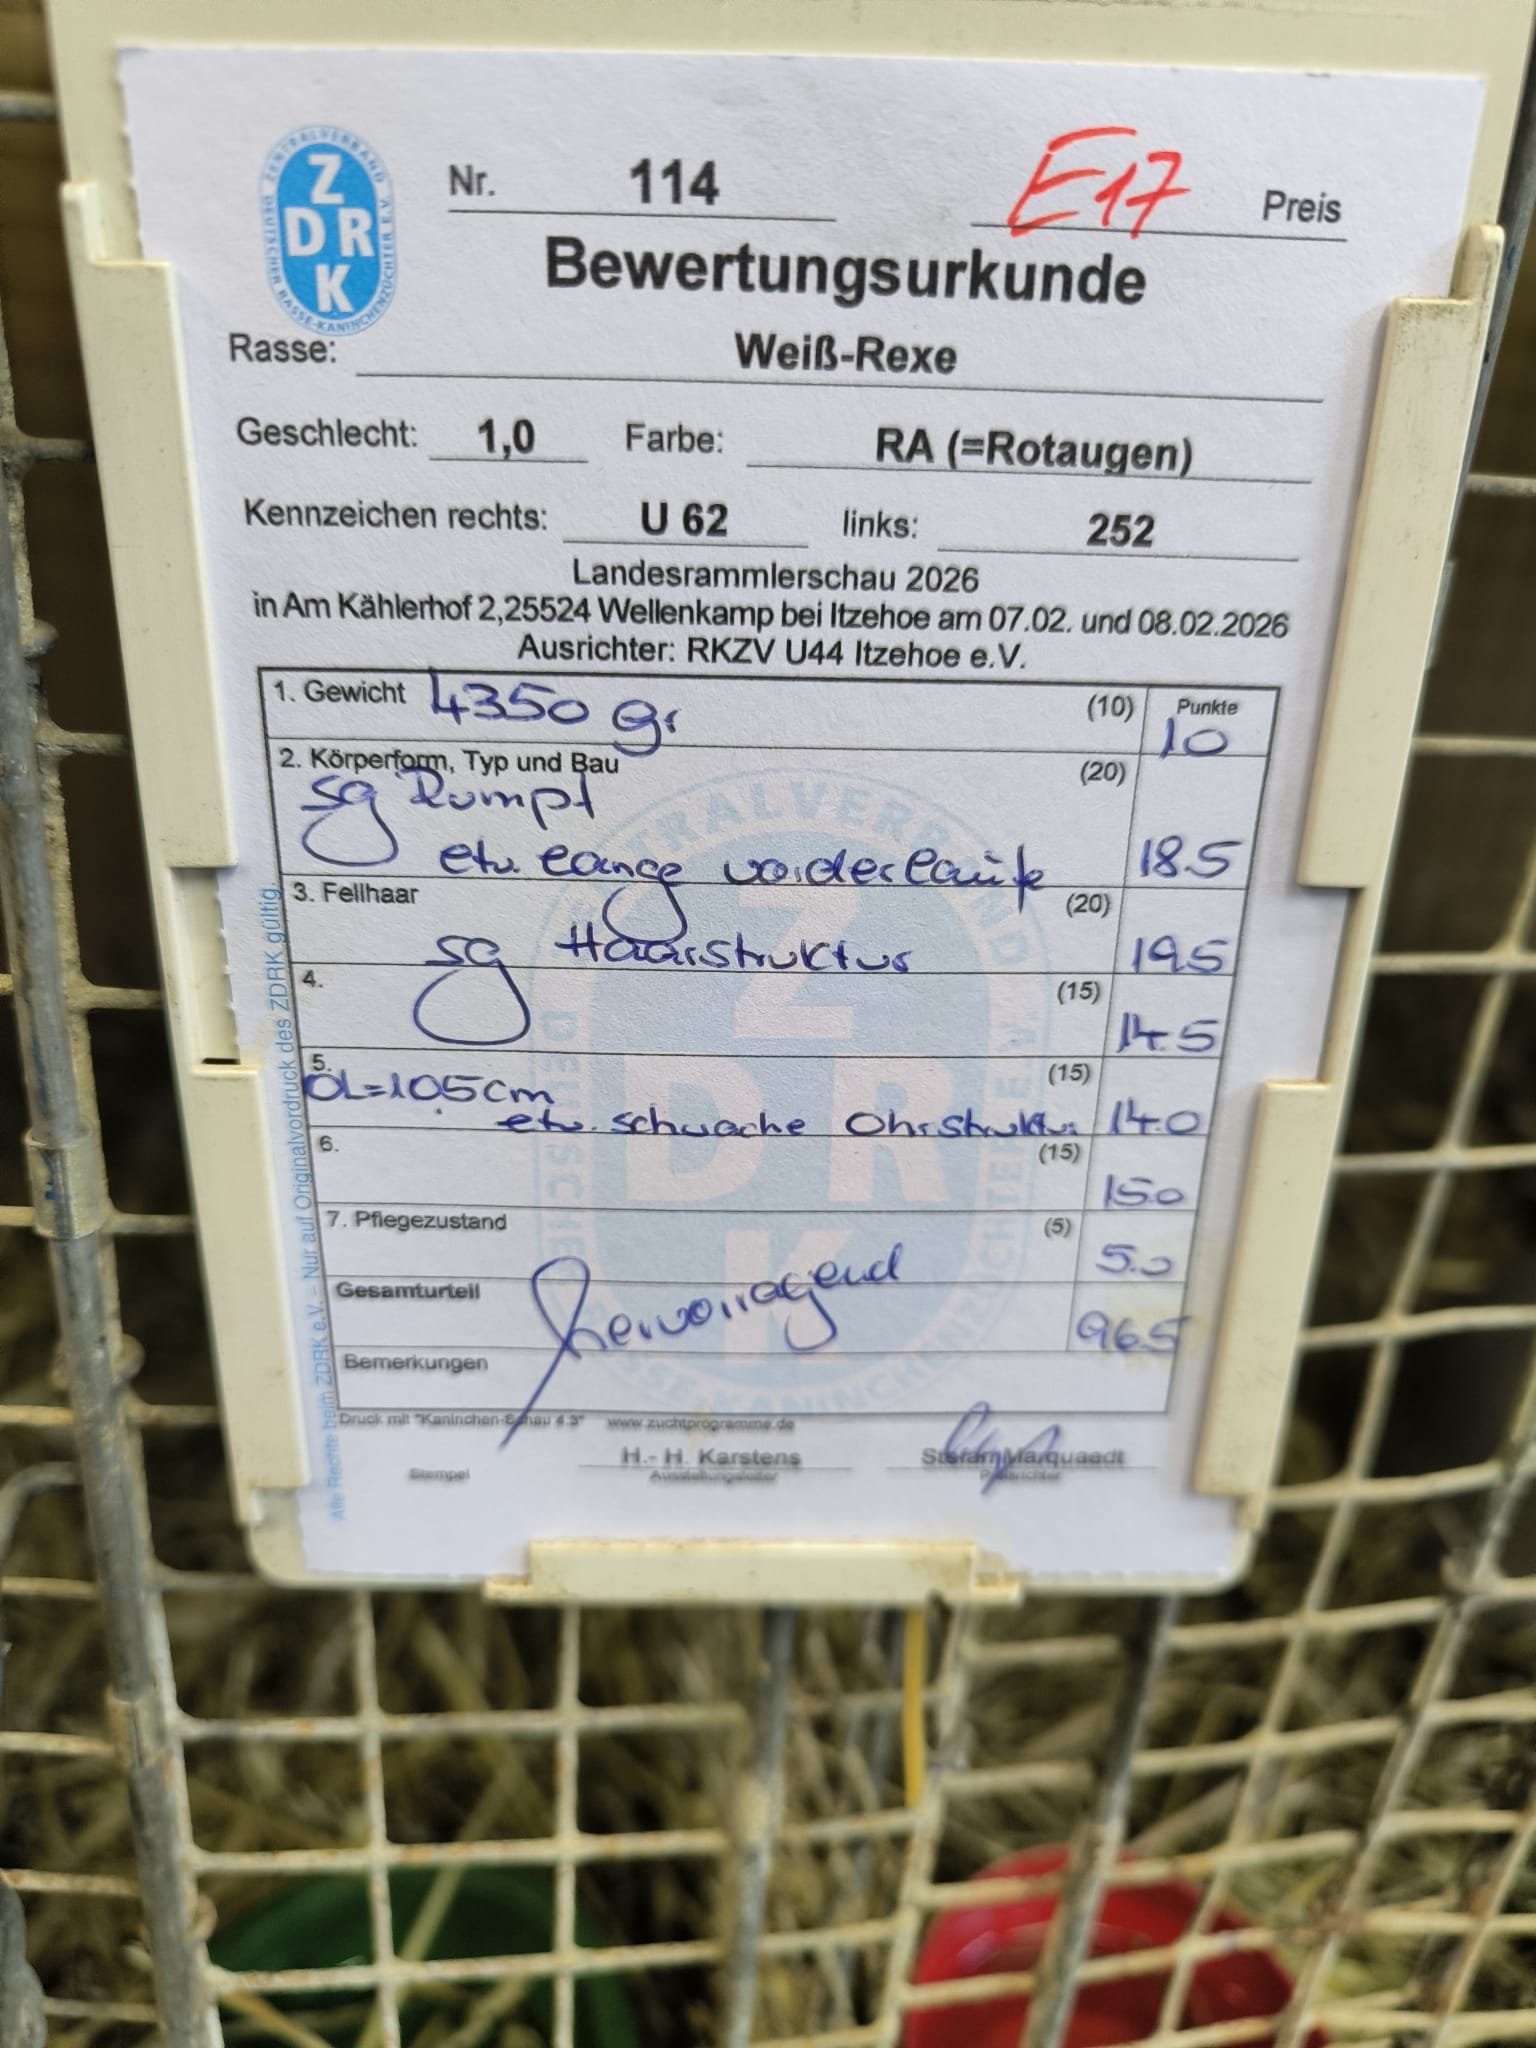 Nr. 114 E17 Preis
ZENTRALVERBAND DEUTSCHER RASSE-KANINCHENZÜCHTER E.V.
Z
DR
K
Bewertungsurkunde
Rasse: Weiß-Rexe
Geschlecht: 1,0 Farbe: RA (=Rotaugen)
Kennzeichen rechts: U 62 links: 252
Landesrammlerschau 2026
in Am Kählerhof 2,25524 Wellenkamp bei Itzehoe am 07.02. und 08.02.2026
Ausrichter: RKZV U44 Itzehoe e.V.
1. Gewicht 4350 gr (10) Punkte 10
2. Körperform, Typ und Bau (20)
sg Rumpf
etw. lange vorderläufe 18.5
3. Fellhaar (20)
sg Haarstruktur 19.5
4. (15) 14.5
5. (15)
OL=10.5cm
etw. schwache Ohrstruktur 14.0
6. (15) 15.0
7. Pflegezustand (5) 5.0
Gesamturteil hervorragend 96.5
Bemerkungen
Druck mit "Kaninchen-Schau 4.3" www.zuchtprogramme.de
H.- H. Karstens Stefan Marquaadt
Stempel Ausstellungsleiter Preisrichter
Alle Rechte beim ZDRK e.V. – Nur auf Originalvordruck des ZDRK gültig.